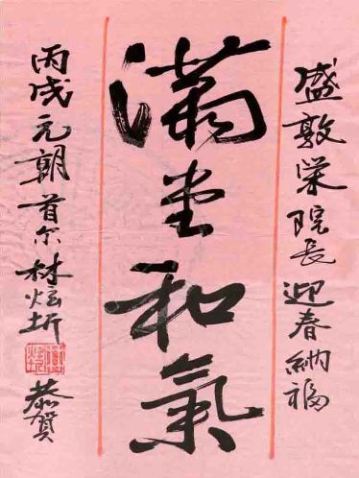 盛敦荣院長迎春納福
满堂和氣
丙戌元朝首尔林炫圻
恭賀